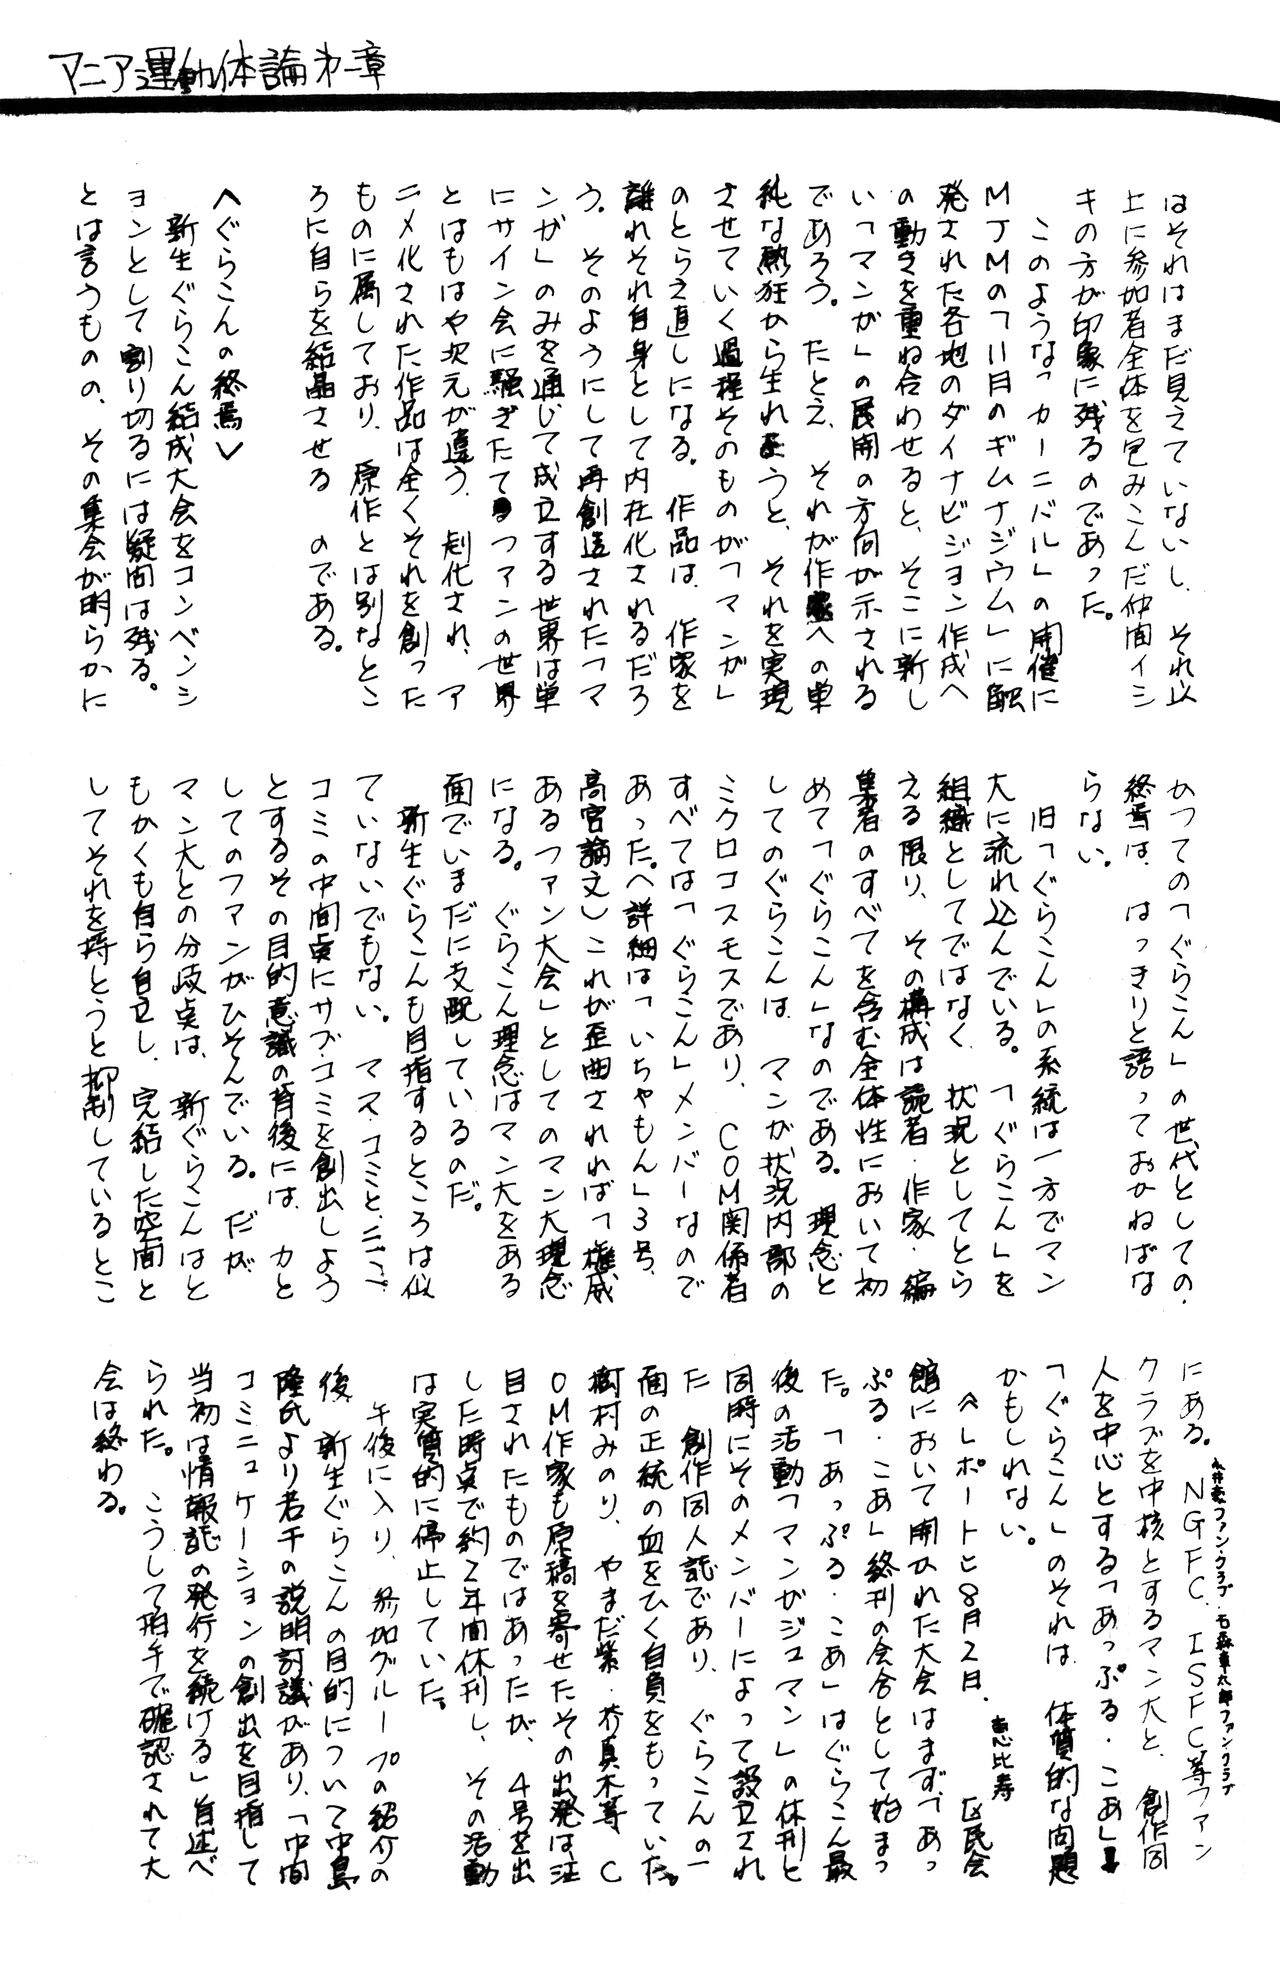 マニア運動体論 第二章
はそれはまだ見えていないし、それ以
上に参加者全体を包みこんだ仲間イシ
キの方が印象に残るのであった。
このような「カーニバル」の開催に
MJMの「11月のギムナジウム」に触
発された各地のダイナビジョン作成へ
の動きを重ね合わせると、そこに新し
い「マンガ」の展開の方向が示される
であろう。たとえ、それが作家への単
純な熱狂から生れようと、それを実現
させていく過程そのものが「マンガ」
のとらえ直しになる。作品は、作家を
離れそれ自身として内在化されるだろ
う。そのようにして再創造された「マ
ンガ」のみを通じて成立する世界は単
にサイン会に騒ぎたてるファンの世界
とはもはや次元が違う、劇化され、ア
ニメ化された作品は全くそれを創った
ものに属しており、原作とは別なとこ
ろに自らを結晶させる のである。
<ぐらこんの終焉>
新生ぐらこん結成大会をコンベンシ
ョンとして割り切るには疑問は残る。
とは言うものの、その集会が明らかに
かつての「ぐらこん」の世代としての、
終焉は、はっきりと語っておかねばな
らない。
旧「ぐらこん」の系統は一方でマン
大に流れ込んでいる。「ぐらこん」を
組織としてではなく、状況としてとら
える限り、その構成は読者・作家・編
集者のすべてを含む全体性において初
めて「ぐらこん」なのである。理念と
してのぐらこんは、マンガ状況内部の
ミクロコスモスであり、COM関係者
すべては「ぐらこん」メンバーなので
あった。(詳細は「いちゃもん」3号、
高宮論文)これが歪曲されれば「権威
あるファン大会」としてのマン大理念
になる。ぐらこん理念はマン大をある
面でいまだに支配しているのだ。
新生ぐらこんも目指すところは似
ていないでもない。マス・コミとミニ・
コミの中間点にサブ・コミを創出しよう
とするその目的意識の背後には、カと
してのファンがひそんでいる。だが、
マン大との分岐点は、新ぐらこんはと
もかくも自ら自立し、完結した空間と
してそれを持とうと抑制しているとこ
にある。NGFC、ISFC等ファン
永井豪ファン・クラブ・石森章太郎ファンクラブ
クラブを中核とするマン大と、創作同
人を中心とする「あっぷる・こあ」!
「ぐらこん」のそれは、体質的な問題
かもしれない。
<レポート>8月2日、恵比寿区民会
館において開かれた大会はまず、「あっ
ぷる・こあ」終刊の会合として始まっ
た。「あっぷる・こあ」はぐらこん最
後の活動「マンガジュマン」の休刊と
同時にそのメンバーによって設立され
た 創作同人誌であり、ぐらこんの一
面の正統の血をひく自負をもっていた。
樹村みのり、やまだ紫・芥真木等 C
OM作家も原稿を寄せたその出発は注
目されたものではあったが、4号を出
した時点で約2年間休刊し、その活動
は実質的に停止していた。
午後に入り、参加グループの紹介の
後、新生ぐらこんの目的について中島
隆氏より若干の説明討議があり、「中間
コミニュケーションの創出を目指して
当初は情報誌の発行を続ける」旨述べ
られた。こうして拍手で確認されて大
会は終わる。